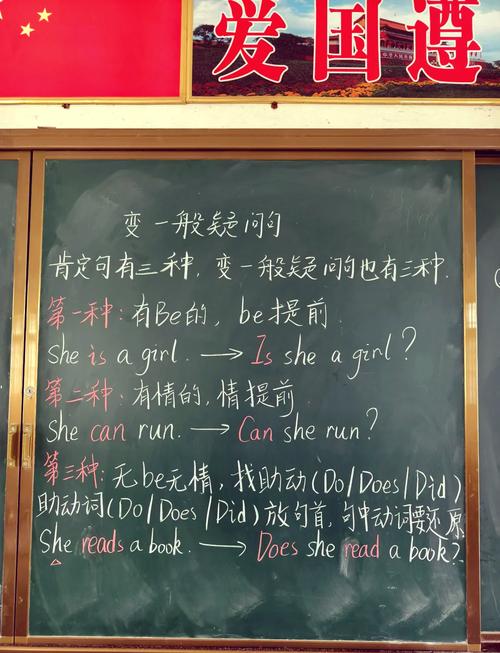 爱国遵
变一般疑问句
肯定句有三种，变一般疑问句也有三种.
第一种：有Be的，be提前.
She is a girl. → Is she a girl?
第二种：有情的，情提前
She can run. → Can she run?
第三种：无be无情，找助动(Do/Does/Did)
助动词(Do/Does/Did)放句首，句中动词要还原
She reads a book. → Does she read a book?